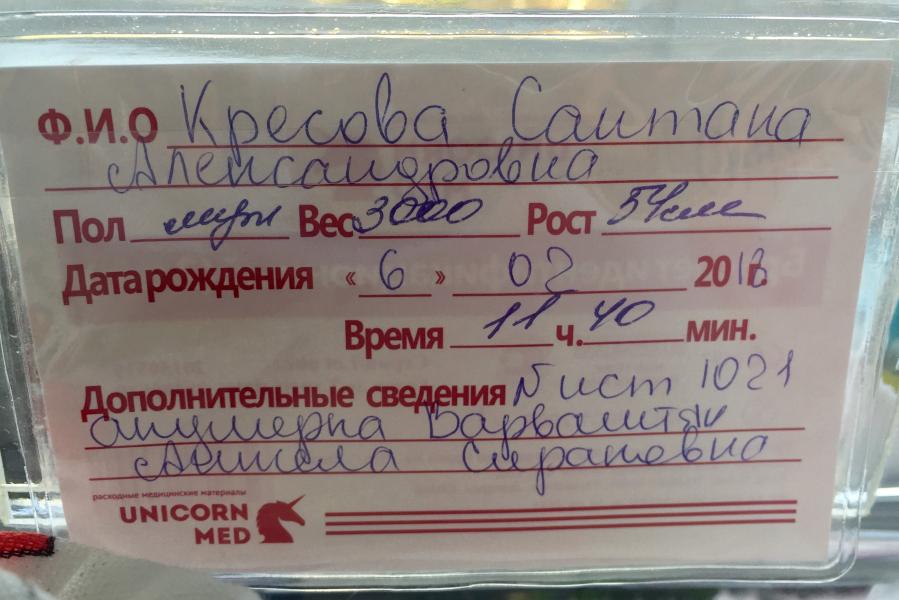 Ф.И.О Кресова Саитана
Александровна
Пол муж Вес 3000 Рост 54см
Дата рождения « 6 » 02 2018 г.
Время 11 ч. 40 мин.
Дополнительные сведения N ист 1021
акушерка
расходные медицинские материалы
UNICORN
MED